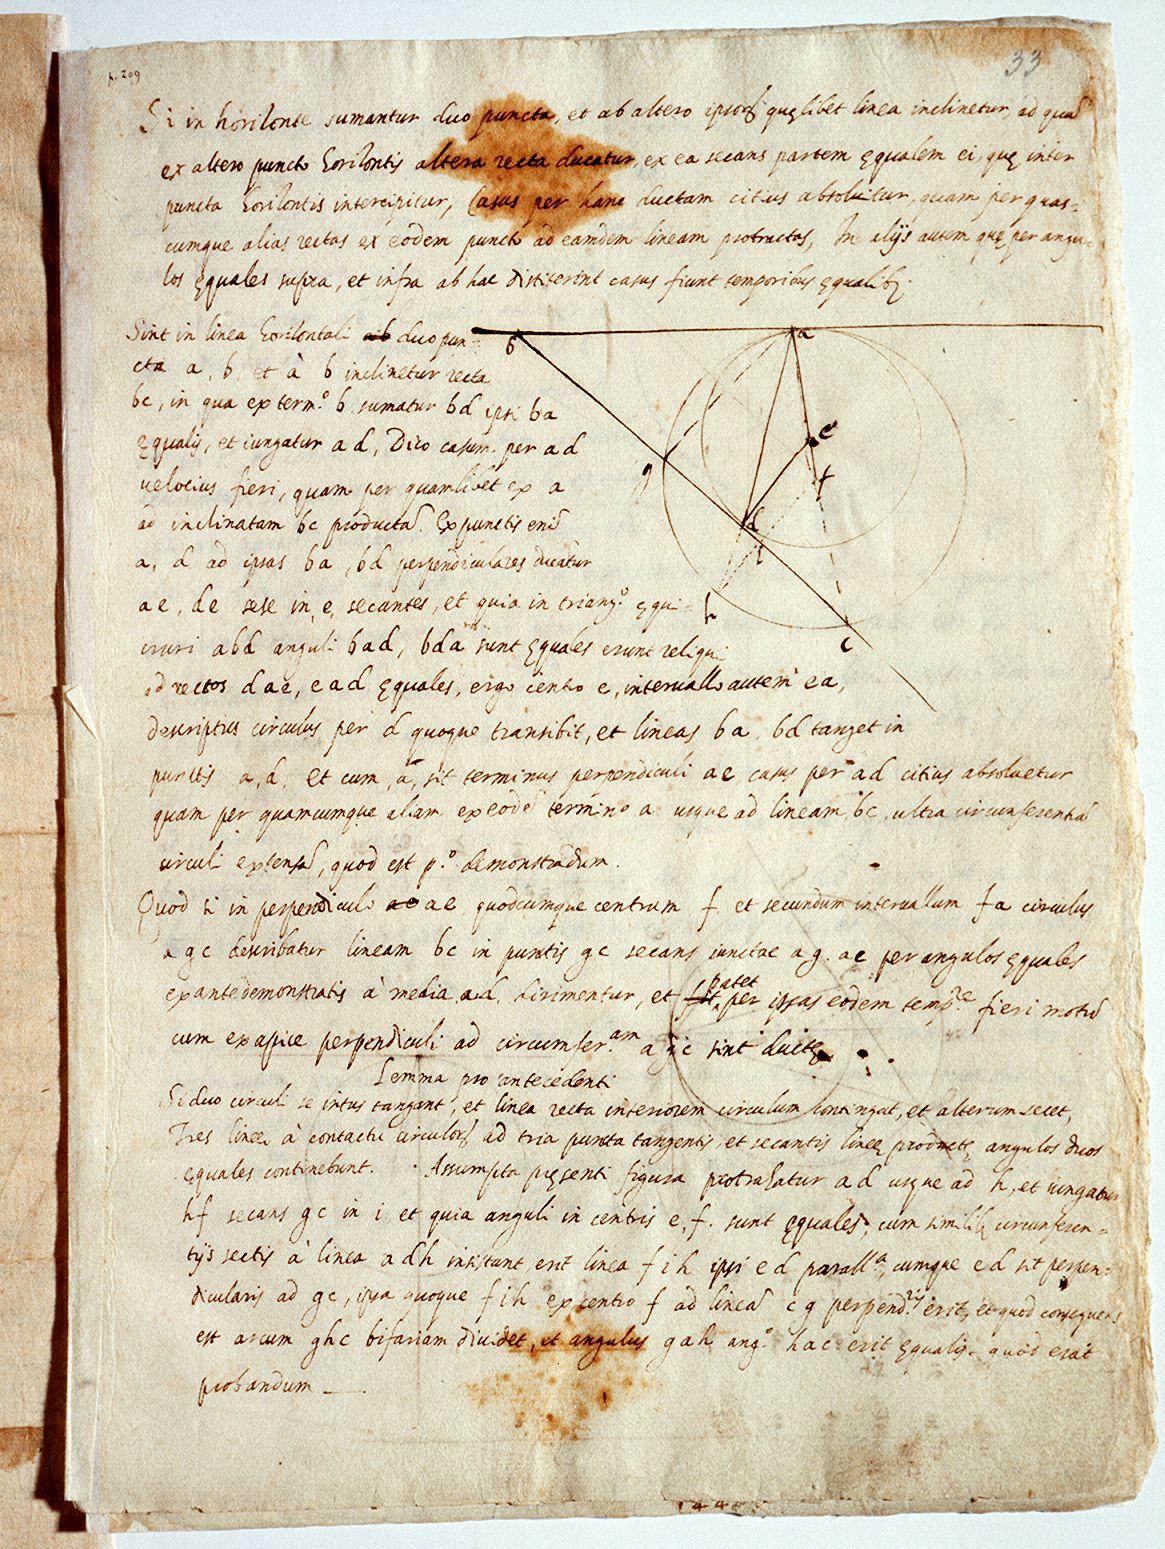 33
p. 209
Si in horizonte sumantur duo puncta, et ab altero ipsoꝝ quęlibet linea inclinetur, ad quā
ex altero puncto horizontis altera recta ducatur, ex ea secans partem ęqualem ei, quę inter
puncta horizontis intercipitur, Casus per hanc ductam citius absolvitur, quam per quas=
cumque alias rectas ex eodem puncto ad eamdem lineam protractas, In alijs autem quę per angu=
los ęquales supra, et infra ab hac distiterint casus fiunt temporibus ęqualibꝫ.
Sint in linea horizontali duo pun=
cta a, b, et à b inclinetur recta
bc, in qua ex term.º b sumatur bd ipsi ba
ęqualis, et iungatur ad, Dico casum per ad
velocius fieri, quam per quamlibet ex a
ad inclinatam bc productā. Ex punctis enī
a, d ad ipsas ba, bd perpendiculares ducātur
ae, de sese in e, secantes, et quia in triang.º ęqui=
cruri abd anguli bad, bda sunt ęquales erunt reliqui
ad rectos dae, ead ęquales, ergo centro e, intervallo autem ea,
descriptus circulus per d quoque transibit, et lineas ba, bd tanget in
punctis a, d, et cum, a, sit terminus perpendiculi ae, casus per ad citius absolvetur
quam per quamcumque aliam ex eodē termino a usque ad lineam bc, ultra circunferentiā
circuli extensā, quod est p.º demonstrādum.
Quod si in perpendiculo ae quodcumque centrum f, et secundum intervallum fa circulus
agc describatur lineam bc in punctis gc secans iunctae ag, ac per angulos ęquales
ex ante demonstratis à media ad dirimentur, et patet per ipsas eodem temp.re fieri motū
cum ex apice perpendiculi ad circumfer.am agc sint ductę
Lemma pro antecedenti
Si duo circuli se intus tangant, et linea recta interiorem circulum contingat, et alterum secet,
Tres lineę à contactu circuloꝝ ad tria puncta tangentis, et secantis lineę productę angulos duos
ęquales continebunt. Assumpta pręsenti figura protrahatur ad usque ad h, et iungatur
hf secans gc in i et quia anguli in centris e, f. sunt ęquales, cum similibꝫ circunferen=
tijs sectis à linea adh insistant erit linea fih ipsi ed parall.a, cumque ed sit perpen=
dicularis ad gc, ipsa quoque fih ex centro f ad lineā cg perpend.ris erit, et quod consequens
est arcum ghc bifariam dividet, et angulus gah ang.º hac erit ęqualis. quod erat
probandum
b
a
e
g
f
d
i
h
c